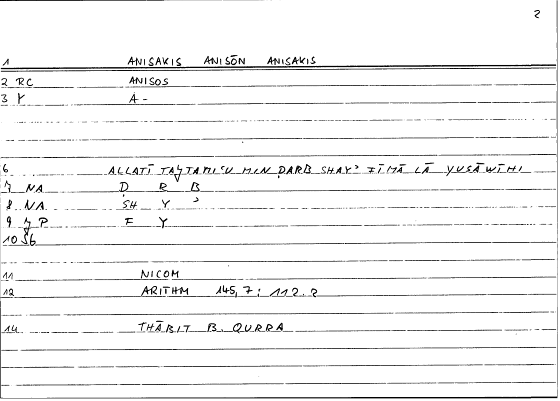 2
1 ANISAKIS ANISŌN ANISAKIS
2 RC ANISOS
3 Y A-
6 ALLATĪ TAǦTAMIʿU MIN ḌARB SHAYʾ FĪMĀ LĀ YUSĀWĪHI
7 NA Ḍ R B
8 NA SH Y ʾ
9 P F Y
10
11 NICOM
12 ARITHM 145,7: 112.2
14 THĀBIT B. QURRA